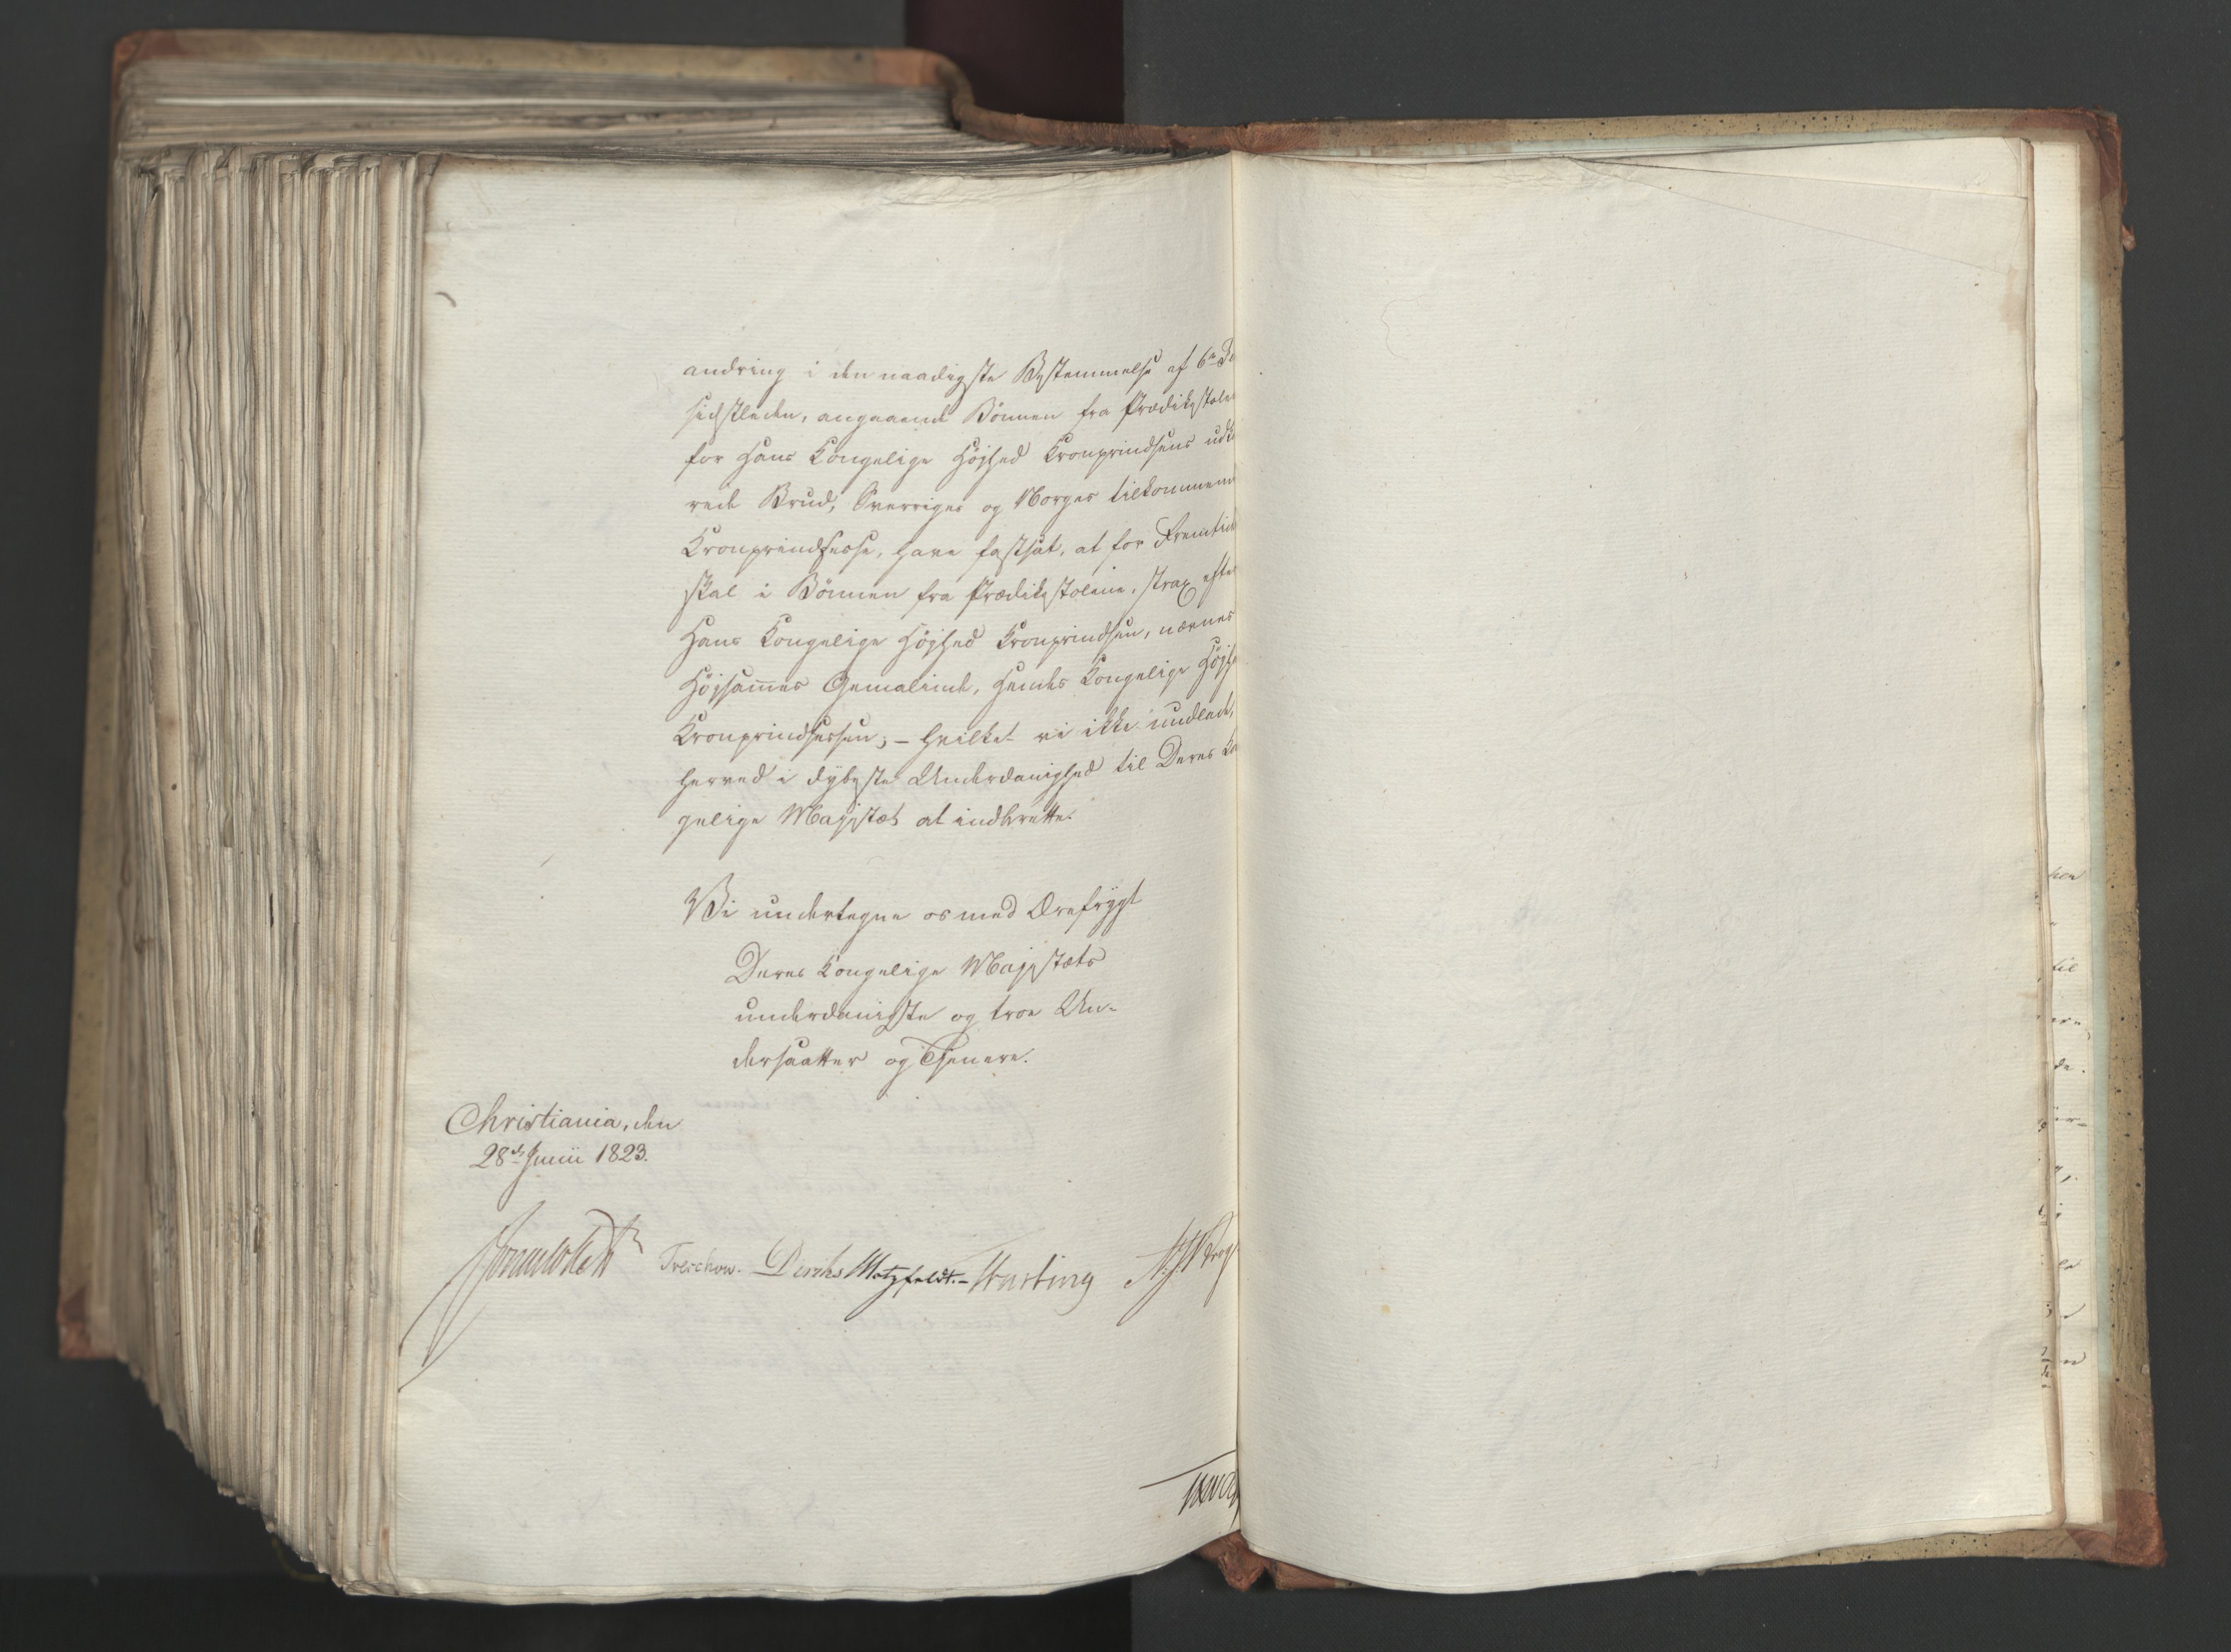 andring i den naadigste Bestemmelse af 6te
sidstleden, angaaende Bönnen fra Prædikestolen
for Hans Kongelige Höjhed Kronprindsens udkaa
rede Brud, Sverriges og Norges tilkommende
Kronprindsesse, have fastsat, at for Fremtiden
skal i Bönnen fra Prædikestolene, strax efter
Hans Kongelige Höjhed Kronprindsen, nævnes
Höjsammes Gemalinde, Hendes Kongelige Höjhed
Kronprindsessen; – hvilket vi ikke undlade,
herved i dybeste Underdanighed til Deres Kon
gelige Majestæt at indberette.
Vi undertegne os med Ærefrygt
Deres Kongelige Majestæts
underdanigste og troe Un-
dersaatter og Tjenere.
Christiania, den
28de Junii 1823.
Treschow. Diriks Motzfeldt. Fasting
til